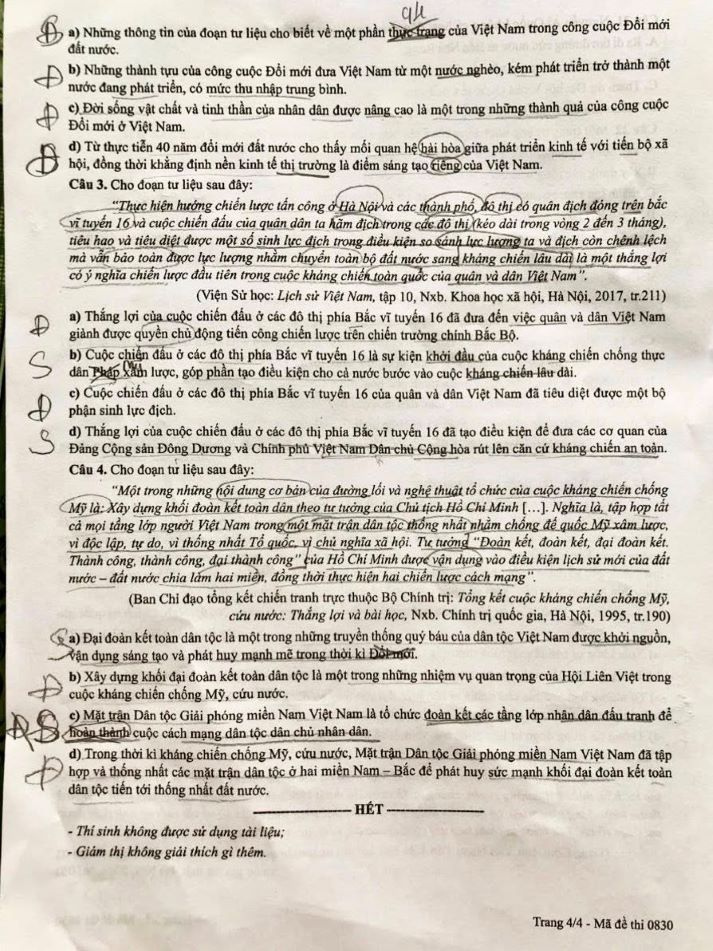 gđ
Đ a) Những thông tin của đoạn tư liệu cho biết về một phần thực trạng của Việt Nam trong công cuộc Đổi mới
đất nước.
Đ b) Những thành tựu của công cuộc Đổi mới đưa Việt Nam từ một nước nghèo, kém phát triển trở thành một
nước đang phát triển, có mức thu nhập trung bình.
Đ c) Đời sống vật chất và tinh thần của nhân dân được nâng cao là một trong những thành quả của công cuộc
Đổi mới ở Việt Nam.
Đ d) Từ thực tiễn 40 năm đổi mới đất nước cho thấy mối quan hệ hài hòa giữa phát triển kinh tế với tiến bộ xã
hội, đồng thời khẳng định nền kinh tế thị trường là điểm sáng tạo riêng của Việt Nam.
Câu 3. Cho đoạn tư liệu sau đây:
“Thực hiện hướng chiến lược tấn công ở Hà Nội và các thành phố, đô thị có quân địch đóng trên bắc
vĩ tuyến 16 và cuộc chiến đấu của quân dân ta hãm địch trong các đô thị (kéo dài trong vòng 2 đến 3 tháng),
tiêu hao và tiêu diệt được một số sinh lực địch trong điều kiện so sánh lực lượng ta và địch còn chênh lệch
mà vẫn bảo toàn được lực lượng nhằm chuyển toàn bộ đất nước sang kháng chiến lâu dài là một thắng lợi
có ý nghĩa chiến lược đầu tiên trong cuộc kháng chiến toàn quốc của quân và dân Việt Nam”.
(Viện Sử học: Lịch sử Việt Nam, tập 10, Nxb. Khoa học xã hội, Hà Nội, 2017, tr.211)
Đ a) Thắng lợi của cuộc chiến đấu ở các đô thị phía Bắc vĩ tuyến 16 đã đưa đến việc quân và dân Việt Nam
giành được quyền chủ động tiến công chiến lược trên chiến trường chính Bắc Bộ.
S b) Cuộc chiến đấu ở các đô thị phía Bắc vĩ tuyến 16 là sự kiện khởi đầu của cuộc kháng chiến chống thực
dân Pháp xâm lược, góp phần tạo điều kiện cho cả nước bước vào cuộc kháng chiến lâu dài.
Đ c) Cuộc chiến đấu ở các đô thị phía Bắc vĩ tuyến 16 của quân và dân Việt Nam đã tiêu diệt được một bộ
phận sinh lực địch.
S d) Thắng lợi của cuộc chiến đấu ở các đô thị phía Bắc vĩ tuyến 16 đã tạo điều kiện để đưa các cơ quan của
Đảng Cộng sản Đông Dương và Chính phủ Việt Nam Dân chủ Cộng hòa rút lên căn cứ kháng chiến an toàn.
Câu 4. Cho đoạn tư liệu sau đây:
“Một trong những nội dung cơ bản của đường lối và nghệ thuật tổ chức của cuộc kháng chiến chống
Mỹ là: Xây dựng khối đoàn kết toàn dân theo tư tưởng của Chủ tịch Hồ Chí Minh [...]. Nghĩa là, tập hợp tất
cả mọi tầng lớp người Việt Nam trong một mặt trận dân tộc thống nhất nhằm chống đế quốc Mỹ xâm lược,
vì độc lập, tự do, vì thống nhất Tổ quốc, vì chủ nghĩa xã hội. Tư tưởng “Đoàn kết, đoàn kết, đại đoàn kết.
Thành công, thành công, đại thành công” của Hồ Chí Minh được vận dụng vào điều kiện lịch sử mới của đất
nước – đất nước chia làm hai miền, đồng thời thực hiện hai chiến lược cách mạng”.
(Ban Chỉ đạo tổng kết chiến tranh trực thuộc Bộ Chính trị: Tổng kết cuộc kháng chiến chống Mỹ,
cứu nước: Thắng lợi và bài học, Nxb. Chính trị quốc gia, Hà Nội, 1995, tr.190)
S a) Đại đoàn kết toàn dân tộc là một trong những truyền thống quý báu của dân tộc Việt Nam được khởi nguồn,
vận dụng sáng tạo và phát huy mạnh mẽ trong thời kì Đổi mới.
Đ b) Xây dựng khối đại đoàn kết toàn dân tộc là một trong những nhiệm vụ quan trọng của Hội Liên Việt trong
cuộc kháng chiến chống Mỹ, cứu nước.
S c) Mặt trận Dân tộc Giải phóng miền Nam Việt Nam là tổ chức đoàn kết các tầng lớp nhân dân đấu tranh để
hoàn thành cuộc cách mạng dân tộc dân chủ nhân dân.
Đ d) Trong thời kì kháng chiến chống Mỹ, cứu nước, Mặt trận Dân tộc Giải phóng miền Nam Việt Nam đã tập
hợp và thống nhất các mặt trận dân tộc ở hai miền Nam – Bắc để phát huy sức mạnh khối đại đoàn kết toàn
dân tộc tiến tới thống nhất đất nước.
HẾT
- Thí sinh không được sử dụng tài liệu;
- Giám thị không giải thích gì thêm.
Trang 4/4 - Mã đề thi 0830